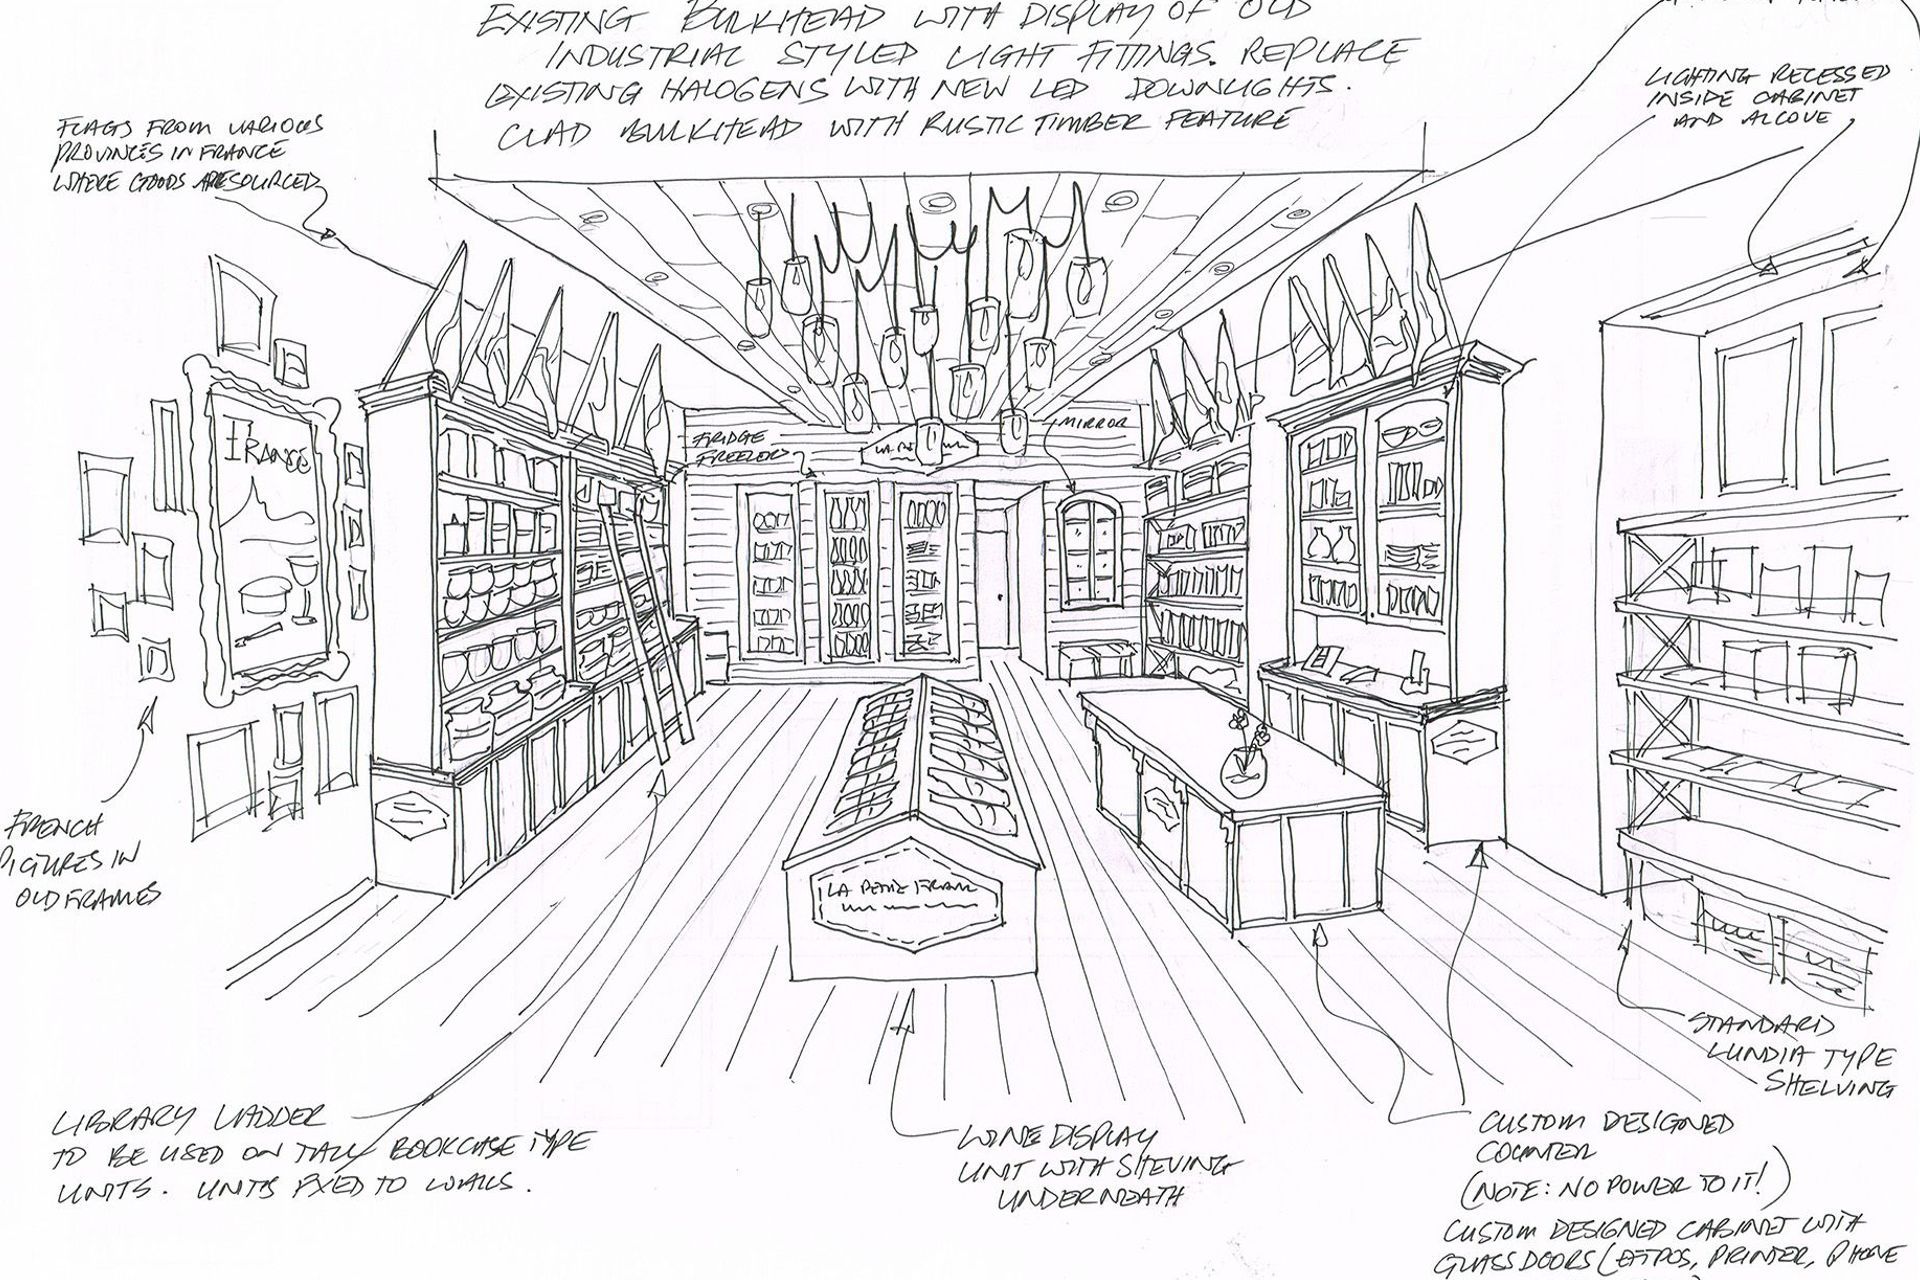 EXISTING BULKHEAD WITH DISPLAY OF OLD
INDUSTRIAL STYLED LIGHT FITTINGS. REPLACE
EXISTING HALOGENS WITH NEW LED DOWNLIGHTS.
CLAD BULKHEAD WITH RUSTIC TIMBER FEATURE
LIGHTING RECESSED
INSIDE CABINET
AND ALCOVE
FLAGS FROM VARIOUS
PROVINCES IN FRANCE
WHERE GOODS ARE SOURCED
FRANCE
FRIDGE
FREEZER
LA PE
MIRROR
LA PETITE FRANC
FRENCH
PICTURES IN
OLD FRAMES
STANDARD
LUNDIA TYPE
SHELVING
LIBRARY LADDER
TO BE USED ON TALL BOOKCASE TYPE
UNITS. UNITS FIXED TO WALLS.
WINE DISPLAY
UNIT WITH SHELVING
UNDERNEATH
CUSTOM DESIGNED
COUNTER
(NOTE: NO POWER TO IT!)
CUSTOM DESIGNED CABINET WITH
GLASS DOORS (EFTPOS, PRINTER, PHONE